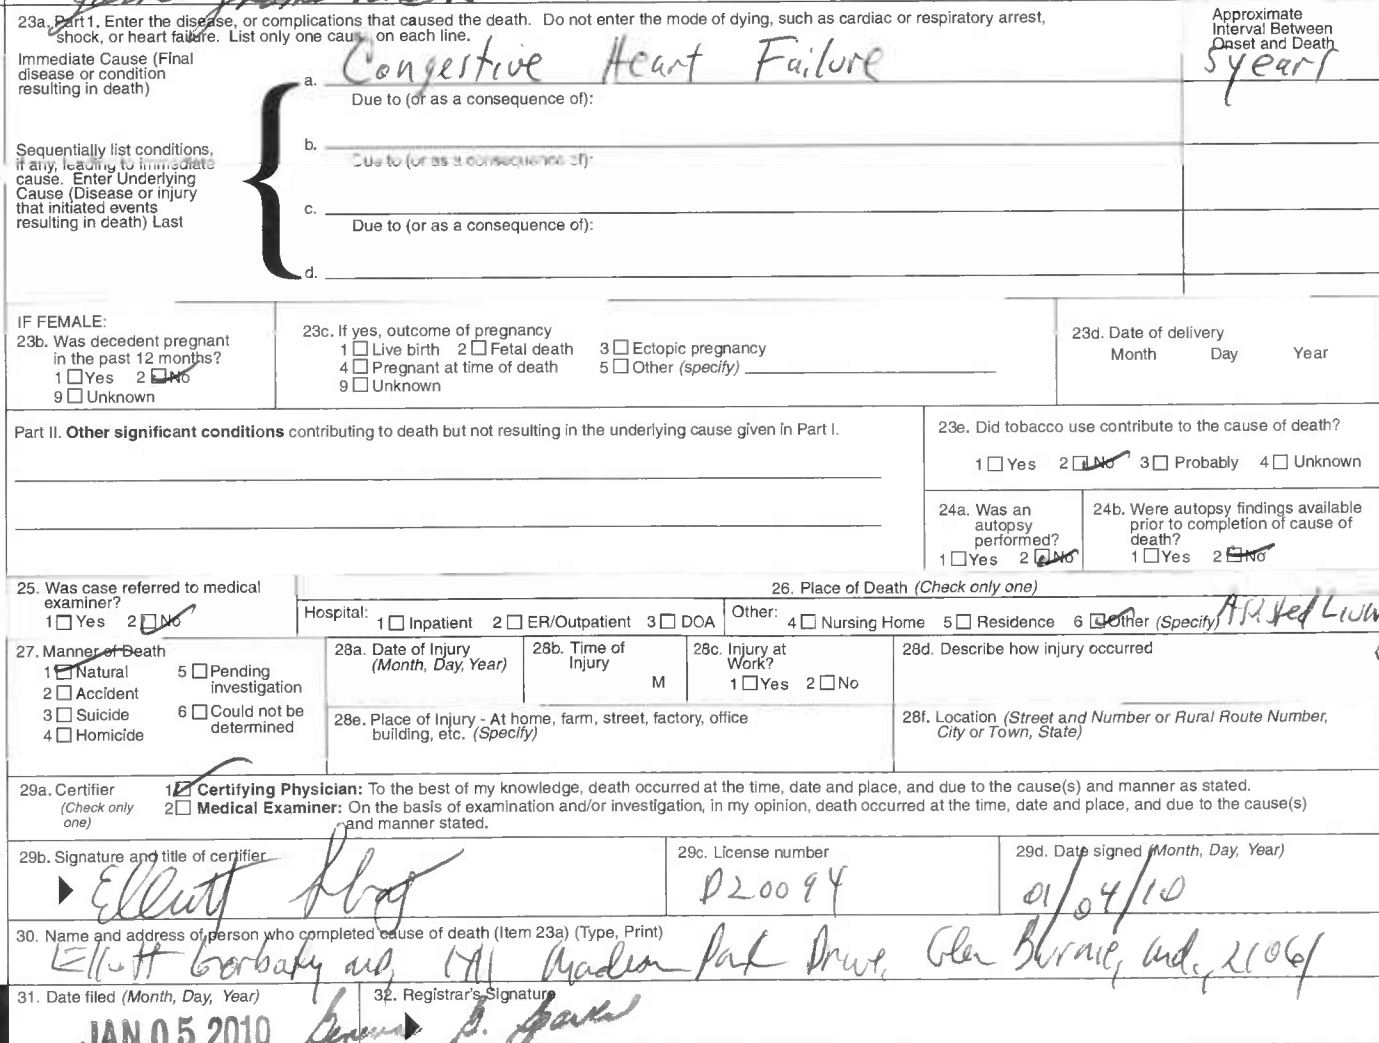 23a. Part 1. Enter the disease, or complications that caused the death. Do not enter the mode of dying, such as cardiac or respiratory arrest,
shock, or heart failure. List only one cause on each line.
Approximate
Interval Between
Onset and Death
Immediate Cause (Final
disease or condition
resulting in death)
a. Congestive Heart Failure
5 years
Due to (or as a consequence of):
Sequentially list conditions,
if any, leading to immediate
cause. Enter Underlying
Cause (Disease or injury
that initiated events
resulting in death) Last
b.
Due to (or as a consequence of):
c.
Due to (or as a consequence of):
d.
IF FEMALE:
23b. Was decedent pregnant
in the past 12 months?
1 Yes 2 No
9 Unknown
23c. If yes, outcome of pregnancy
1 Live birth 2 Fetal death 3 Ectopic pregnancy
4 Pregnant at time of death 5 Other (specify)
9 Unknown
23d. Date of delivery
Month Day Year
Part II. Other significant conditions contributing to death but not resulting in the underlying cause given in Part I.
23e. Did tobacco use contribute to the cause of death?
1 Yes 2 No 3 Probably 4 Unknown
24a. Was an
autopsy
performed?
1 Yes 2 No
24b. Were autopsy findings available
prior to completion of cause of
death?
1 Yes 2 No
25. Was case referred to medical
examiner?
1 Yes 2 No
26. Place of Death (Check only one)
Hospital: 1 Inpatient 2 ER/Outpatient 3 DOA
Other: 4 Nursing Home 5 Residence 6 Other (Specify)
27. Manner of Death
1 Natural
2 Accident
3 Suicide
4 Homicide
5 Pending
investigation
6 Could not be
determined
28a. Date of Injury
(Month, Day, Year)
28b. Time of
Injury
M
28c. Injury at
Work?
1 Yes 2 No
28d. Describe how injury occurred
28e. Place of Injury - At home, farm, street, factory, office
building, etc. (Specify)
28f. Location (Street and Number or Rural Route Number,
City or Town, State)
29a. Certifier
(Check only
one)
1 Certifying Physician: To the best of my knowledge, death occurred at the time, date and place, and due to the cause(s) and manner as stated.
2 Medical Examiner: On the basis of examination and/or investigation, in my opinion, death occurred at the time, date and place, and due to the cause(s)
and manner stated.
29b. Signature and title of certifier
Elliott
29c. License number
D20094
29d. Date signed (Month, Day, Year)
01/04/10
30. Name and address of person who completed cause of death (Item 23a) (Type, Print)
Elliott Gorbaty MD, Madison Park Drive, Glen Burnie, Md., 21061
31. Date filed (Month, Day, Year)
JAN 05 2010
32. Registrar's Signature